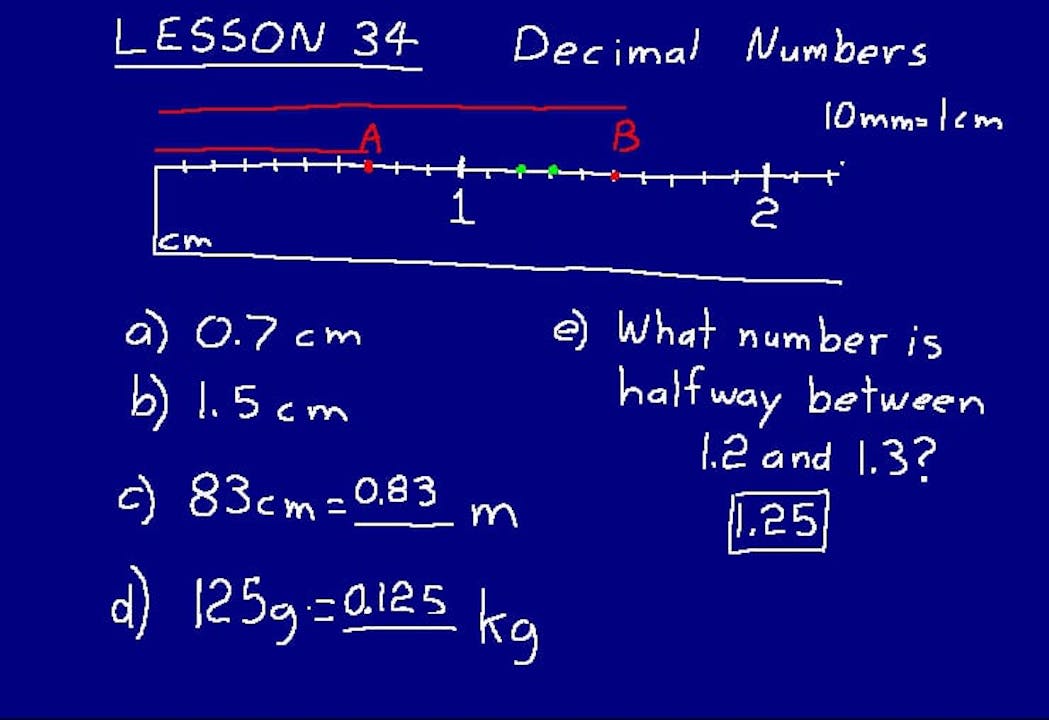 LESSON 34 Decimal Numbers
10mm=1cm
A B
1 2
cm
a) 0.7 cm
b) 1.5 cm
c) 83cm = 0.83 m
d) 125g = 0.125 kg
e) What number is
halfway between
1.2 and 1.3?
1.25